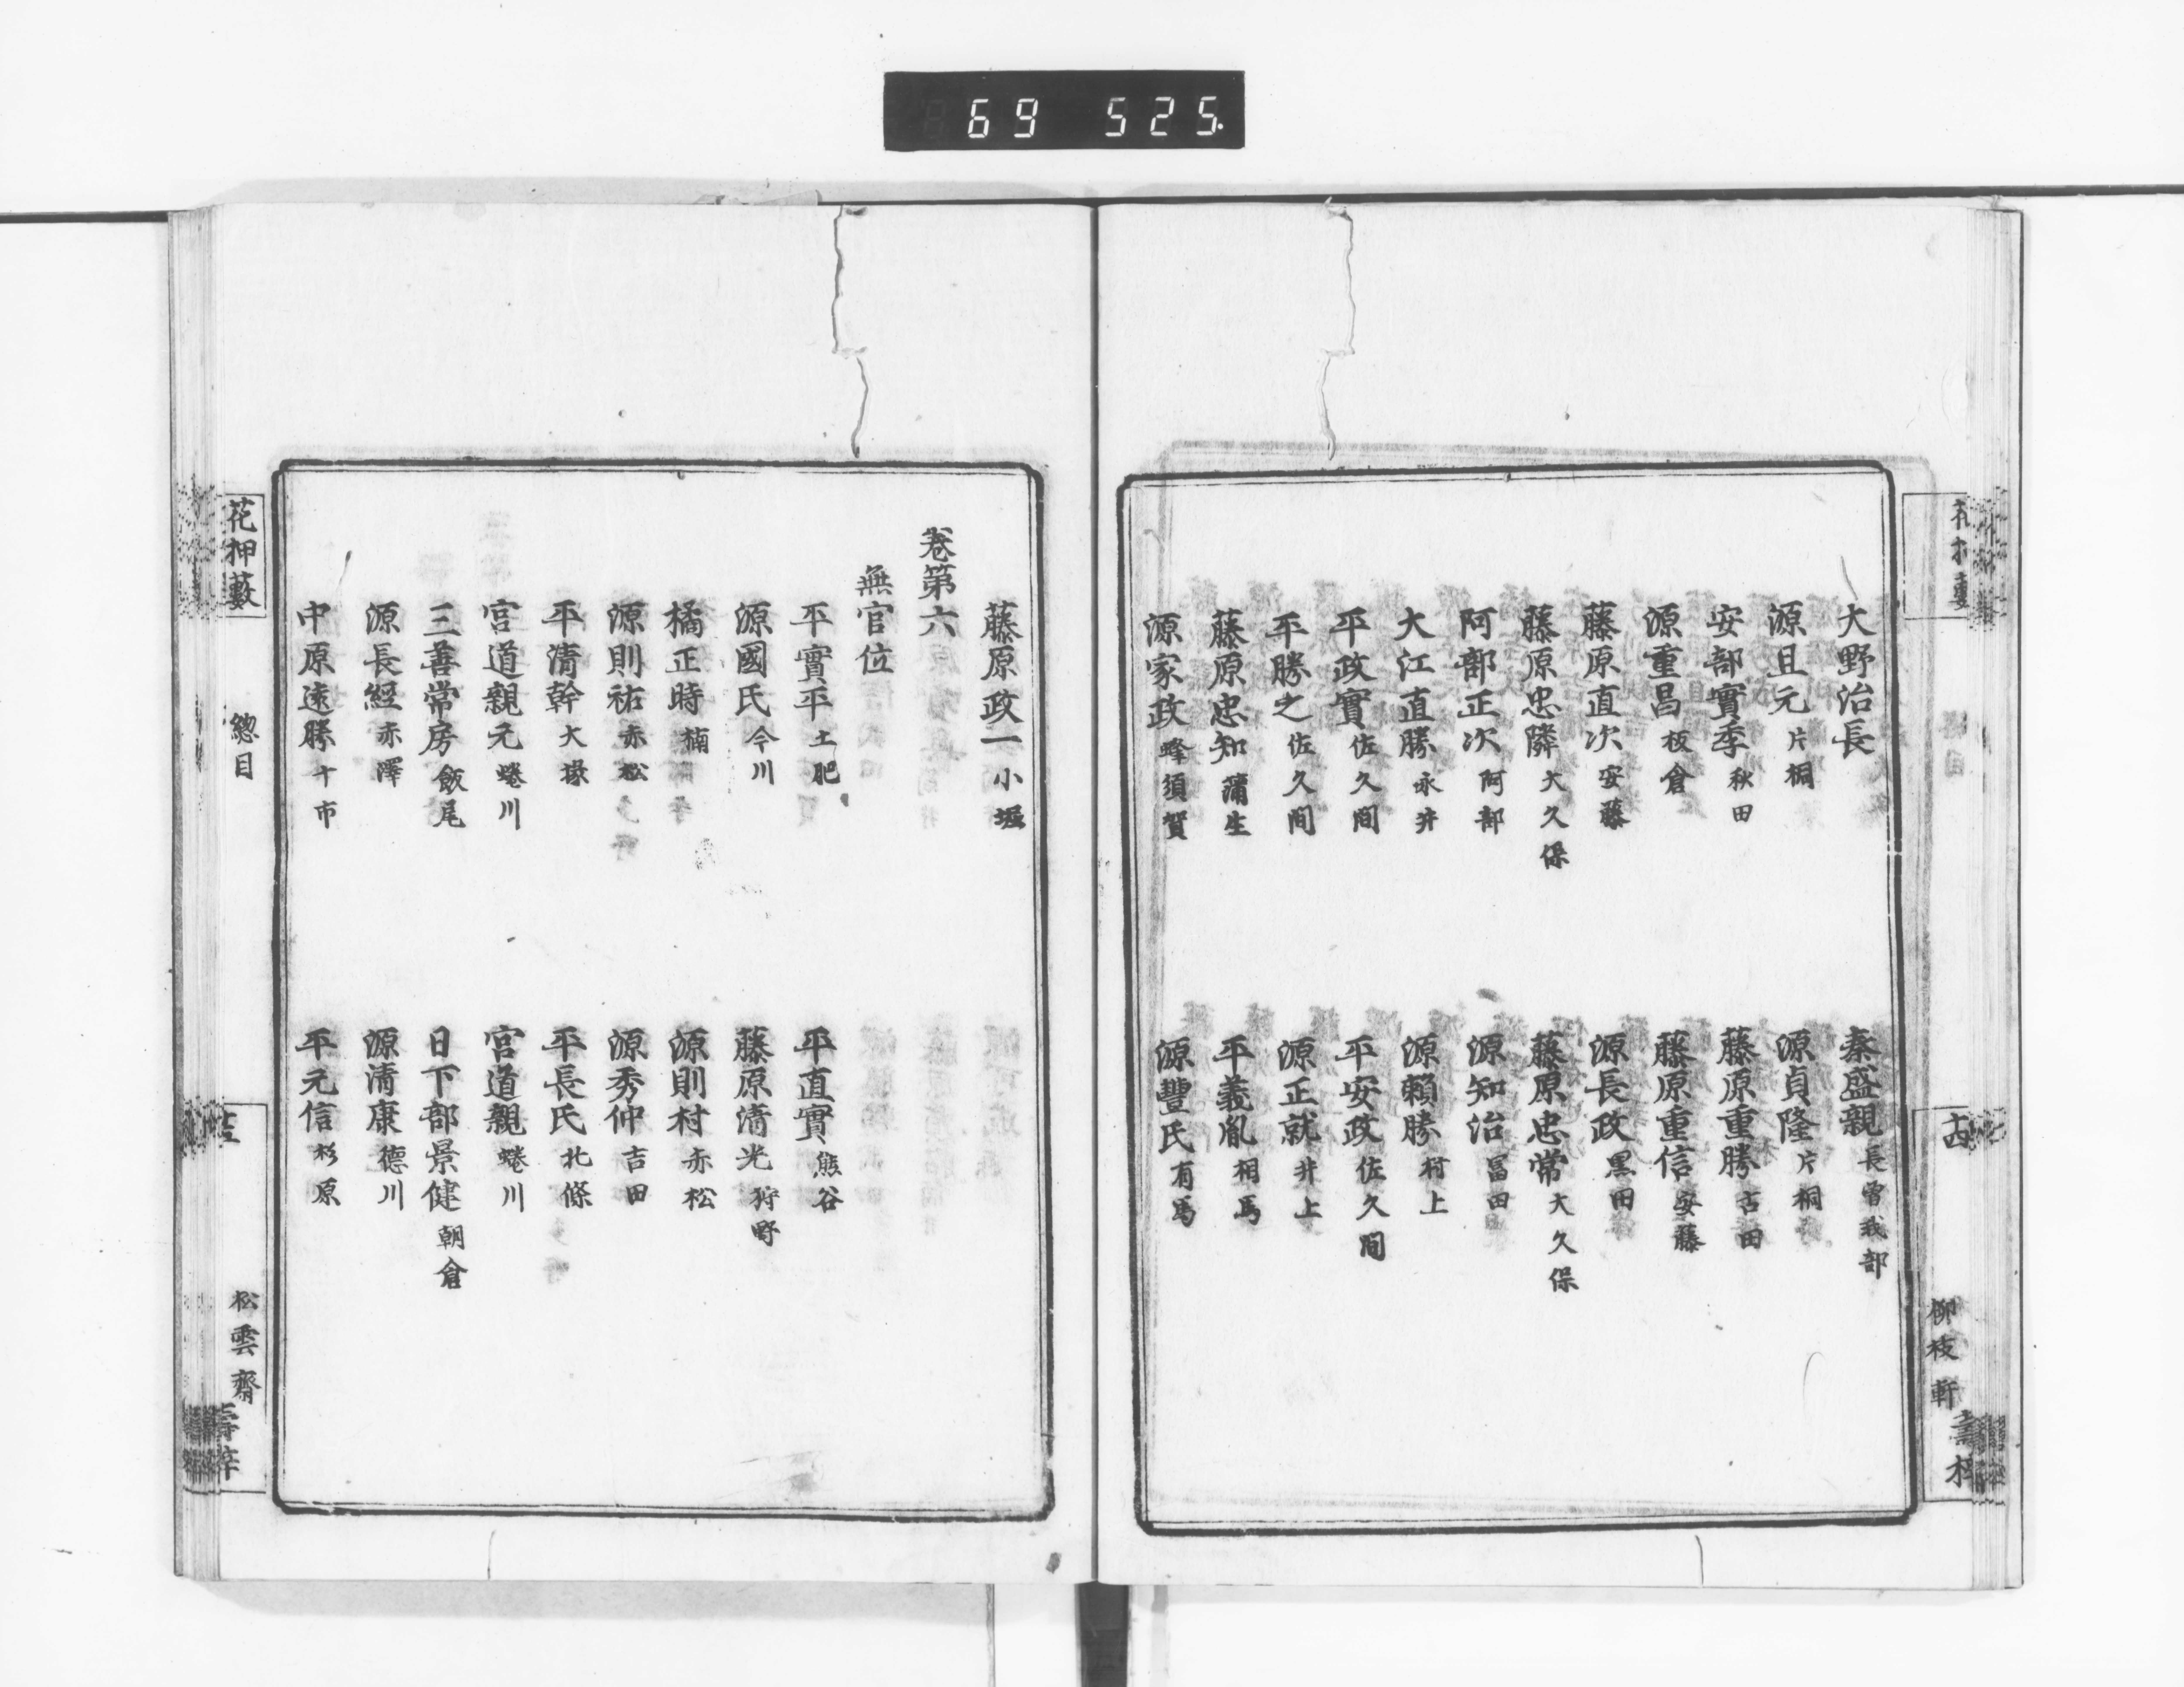 69 525.
大野治長
秦盛親 長曾我部
源且元 片桐
源貞隆 片桐
安部實季 秋田
藤原重勝 古田
源重昌 板倉
藤原重信 安藤
藤原直次 安藤
源長政 黒田
藤原忠隣 大久保
藤原忠常 大久保
阿部正次 阿部
源知治 冨田
大江直勝 永井
源賴勝 村上
平政實 佐久間
平安政 佐久間
平勝之 佐久間
源正就 井上
藤原忠知 蒲生
平義胤 相馬
源家政 蜂須賀
源豐氏 有馬
柳枝軒
藤原政一 小堀
卷第六
無官位
平實平 土肥
平直實 熊谷
源國氏 今川
藤原清光 狩野
橘正時 楠
源則村 赤松
源則祐 赤松
源秀仲 吉田
平清幹 大掾
平長氏 北條
宮道親元 蜷川
宮道親 蜷川
三善常房 飯尾
日下部景健 朝倉
源長經 赤澤
源清康 德川
中原遠勝 十市
平元信 杉原
花押藪
總目
松雲齋